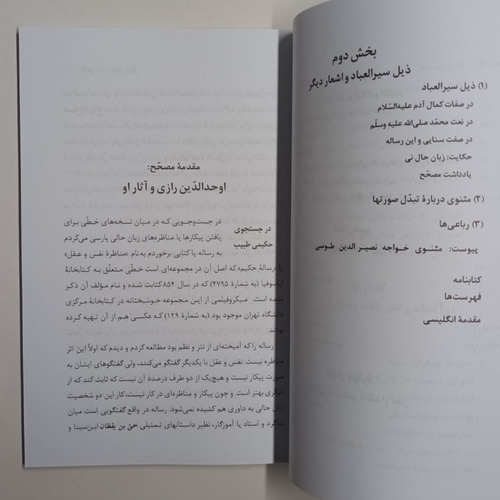 بخش دوم
ذیل سیرالعباد و اشعار دیگر
(۱) ذیل سیرالعباد
در صفات کمال آدم علیه‌السّلام
در نعت محمّد صلی‌الله علیه وسلّم
در صفت سنایی و این رساله
حکایت: زبان حال نی
یادداشت مصحّح
(۲) مثنوی دربارهٔ تبدّل صورتها
(۳) رباعی‌ها
پیوست: مثنوی خواجه نصیرالدین طوسی
کتابنامه
فهرست‌ها
مقدمهٔ انگلیسی
مقدمهٔ مصحّح:
اوحدالدّین رازی و آثار او
در جستجوی
حکیمی طبیب
در جست‌وجویی که در میان نسخه‌های خطّی برای
یافتن پیکارها یا مناظره‌های زبان حالی پارسی می‌کردم
به رساله یا کتابی برخوردم به‌نام «مناظرهٔ نفس و عقل»
یا رسالهٔ حکیم، که اصل آن در مجموعه‌ای است خطّی متعلّق به کتابخانهٔ
ایاصوفیا (به شمارهٔ ۴۷۹۵) که در سال ۸۵۴ کتابت شده و نام مؤلف آن ذکر
نشده است. میکروفیلمی از این مجموعه خوشبختانه در کتابخانهٔ مرکزی
دانشگاه تهران موجود بود (به شمارهٔ ۱۲۹) که عکسی هم از آن تهیه کرده
بودند.
رساله را که آمیخته‌ای از نثر و نظم بود مطالعه کردم و دیدم که اولاً این اثر
مناظره نیست. نفس و عقل با یکدیگر گفتگو می‌کنند، ولی گفتگوهای ایشان به
صورت پیکار نیست و هیچ‌یک از دو طرف درصدد آن نیست که ثابت کند که از
دیگری بهتر است. و چون پیکار و مناظره‌ای در کار نیست، کار این دو شخصیت
زبان حالی به داوری هم کشیده نمی‌شود. رساله در واقع گفتگویی است میان
شاگرد و استاد یا آموزگار، نظیر داستانهای تمثیلی حیّ بن یقظان ابن‌سینا و